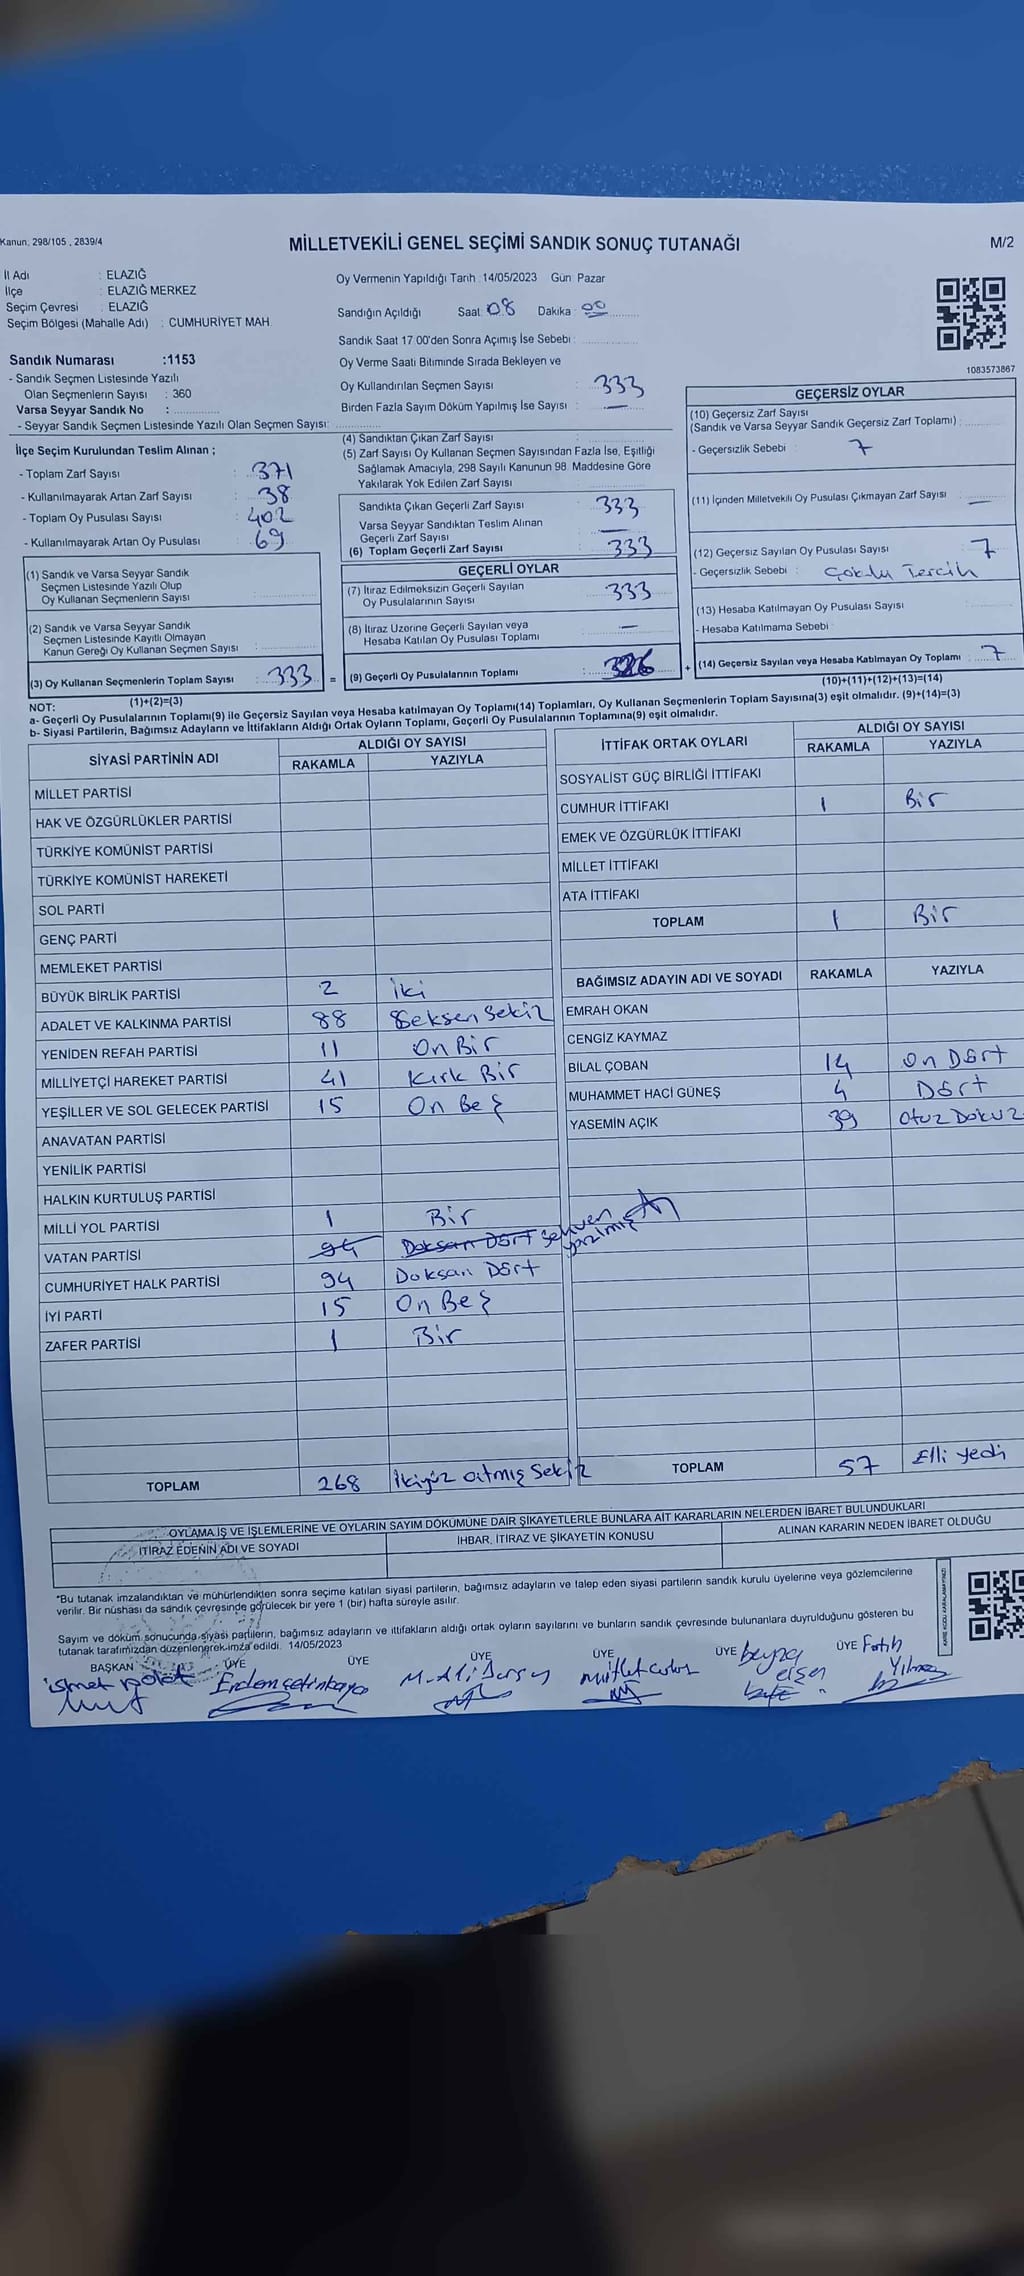 Kanun: 298/105 , 2839/4
MİLLETVEKİLİ GENEL SEÇİMİ SANDIK SONUÇ TUTANAĞI
M/2
İl Adı : ELAZIĞ
İlçe : ELAZIĞ MERKEZ
Seçim Çevresi : ELAZIĞ
Seçim Bölgesi (Mahalle Adı) : CUMHURİYET MAH.
Sandık Numarası :1153
- Sandık Seçmen Listesinde Yazılı
Olan Seçmenlerin Sayısı : 360
Varsa Seyyar Sandık No :
- Seyyar Sandık Seçmen Listesinde Yazılı Olan Seçmen Sayısı:
Oy Vermenin Yapıldığı Tarih :14/05/2023 Gün: Pazar
Sandığın Açıldığı Saat: 08 Dakika : 00
Sandık Saat 17:00'den Sonra Açımış İse Sebebi :
Oy Verme Saati Bitiminde Sırada Bekleyen ve
Oy Kullandırılan Seçmen Sayısı : 333
Birden Fazla Sayım Döküm Yapılmış İse Sayısı : —
1083573867
İlçe Seçim Kurulundan Teslim Alınan ;
- Toplam Zarf Sayısı : 371
- Kullanılmayarak Artan Zarf Sayısı : 38
- Toplam Oy Pusulası Sayısı : 402
- Kullanılmayarak Artan Oy Pusulası : 69
(1) Sandık ve Varsa Seyyar Sandık
Seçmen Listesinde Yazılı Olup
Oy Kullanan Seçmenlerin Sayısı :
(2) Sandık ve Varsa Seyyar Sandık
Seçmen Listesinde Kayıtlı Olmayan
Kanun Gereği Oy Kullanan Seçmen Sayısı :
(3) Oy Kullanan Seçmenlerin Toplam Sayısı : 333 =
(1)+(2)=(3)
(4) Sandıktan Çıkan Zarf Sayısı :
(5) Zarf Sayısı Oy Kullanan Seçmen Sayısından Fazla İse, Eşitliği
Sağlamak Amacıyla, 298 Sayılı Kanunun 98. Maddesine Göre
Yakılarak Yok Edilen Zarf Sayısı :
Sandıkta Çıkan Geçerli Zarf Sayısı : 333
Varsa Seyyar Sandıktan Teslim Alınan
Geçerli Zarf Sayısı : —
(6) Toplam Geçerli Zarf Sayısı : 333
GEÇERLİ OYLAR
(7) İtiraz Edilmeksizin Geçerli Sayılan
Oy Pusulalarının Sayısı : 333
(8) İtiraz Üzerine Geçerli Sayılan veya
Hesaba Katılan Oy Pusulası Toplamı : —
(9) Geçerli Oy Pusulalarının Toplamı : 326 +
GEÇERSİZ OYLAR
(10) Geçersiz Zarf Sayısı
(Sandık ve Varsa Seyyar Sandık Geçersiz Zarf Toplamı) :
- Geçersizlik Sebebi : 7
(11) İçinden Milletvekili Oy Pusulası Çıkmayan Zarf Sayısı : —
(12) Geçersiz Sayılan Oy Pusulası Sayısı : 7
- Geçersizlik Sebebi : Çoklu Tercih
(13) Hesaba Katılmayan Oy Pusulası Sayısı :
- Hesaba Katılmama Sebebi :
(14) Geçersiz Sayılan veya Hesaba Katılmayan Oy Toplamı : 7
(10)+(11)+(12)+(13)=(14)
NOT:
a- Geçerli Oy Pusulalarının Toplamı(9) ile Geçersiz Sayılan veya Hesaba katılmayan Oy Toplamı(14) Toplamları, Oy Kullanan Seçmenlerin Toplam Sayısına(3) eşit olmalıdır. (9)+(14)=(3)
b- Siyasi Partilerin, Bağımsız Adayların ve İttifakların Aldığı Ortak Oyların Toplamı, Geçerli Oy Pusulalarının Toplamına(9) eşit olmalıdır.
SİYASİ PARTİNİN ADI ALDIĞI OY SAYISI
RAKAMLA YAZIYLA
MİLLET PARTİSİ
HAK VE ÖZGÜRLÜKLER PARTİSİ
TÜRKİYE KOMÜNİST PARTİSİ
TÜRKİYE KOMÜNİST HAREKETİ
SOL PARTİ
GENÇ PARTİ
MEMLEKET PARTİSİ
BÜYÜK BİRLİK PARTİSİ 2 İki
ADALET VE KALKINMA PARTİSİ 88 Seksen Sekiz
YENİDEN REFAH PARTİSİ 11 On Bir
MİLLİYETÇİ HAREKET PARTİSİ 41 Kırk Bir
YEŞİLLER VE SOL GELECEK PARTİSİ 15 On Beş
ANAVATAN PARTİSİ
YENİLİK PARTİSİ
HALKIN KURTULUŞ PARTİSİ
MİLLİ YOL PARTİSİ 1 Bir
VATAN PARTİSİ 94 Doksan Dört Sehven yazımış
CUMHURİYET HALK PARTİSİ 94 Doksan Dört
İYİ PARTİ 15 On Beş
ZAFER PARTİSİ 1 Bir
TOPLAM 268 İkiyüz atmış Sekiz
İTTİFAK ORTAK OYLARI ALDIĞI OY SAYISI
RAKAMLA YAZIYLA
SOSYALİST GÜÇ BİRLİĞİ İTTİFAKI
CUMHUR İTTİFAKI 1 Bir
EMEK VE ÖZGÜRLÜK İTTİFAKI
MİLLET İTTİFAKI
ATA İTTİFAKI
TOPLAM 1 Bir
BAĞIMSIZ ADAYIN ADI VE SOYADI RAKAMLA YAZIYLA
EMRAH OKAN
CENGİZ KAYMAZ
BİLAL ÇOBAN 14 On Dört
MUHAMMET HACİ GÜNEŞ 4 Dört
YASEMİN AÇIK 39 Otuz Dokuz
TOPLAM 57 Elli Yedi
OYLAMA İŞ VE İŞLEMLERİNE VE OYLARIN SAYIM DÖKÜMÜNE DAİR ŞİKAYETLERLE BUNLARA AİT KARARLARIN NELERDEN İBARET BULUNDUKLARI
İTİRAZ EDENİN ADI VE SOYADI
İHBAR, İTİRAZ VE ŞİKAYETİN KONUSU
ALINAN KARARIN NEDEN İBARET OLDUĞU
*Bu tutanak imzalandıktan ve mühürlendikten sonra seçime katılan siyasi partilerin, bağımsız adayların ve talep eden siyasi partilerin sandık kurulu üyelerine veya gözlemcilerine
verilir. Bir nüshası da sandık çevresinde görülecek bir yere 1 (bir) hafta süreyle asılır.
Sayım ve döküm sonucunda siyasi partilerin, bağımsız adayların ve ittifakların aldığı ortak oyların sayılarını ve bunların sandık çevresinde bulunanlara duyrulduğunu gösteren bu
tutanak tarafımızdan düzenlenerek imza edildi. 14/05/2023
BAŞKAN ÜYE ÜYE ÜYE ÜYE ÜYE ÜYE
ismet polat Erdem çetinkaya M. Ali Beyza Fatih Yılmaz